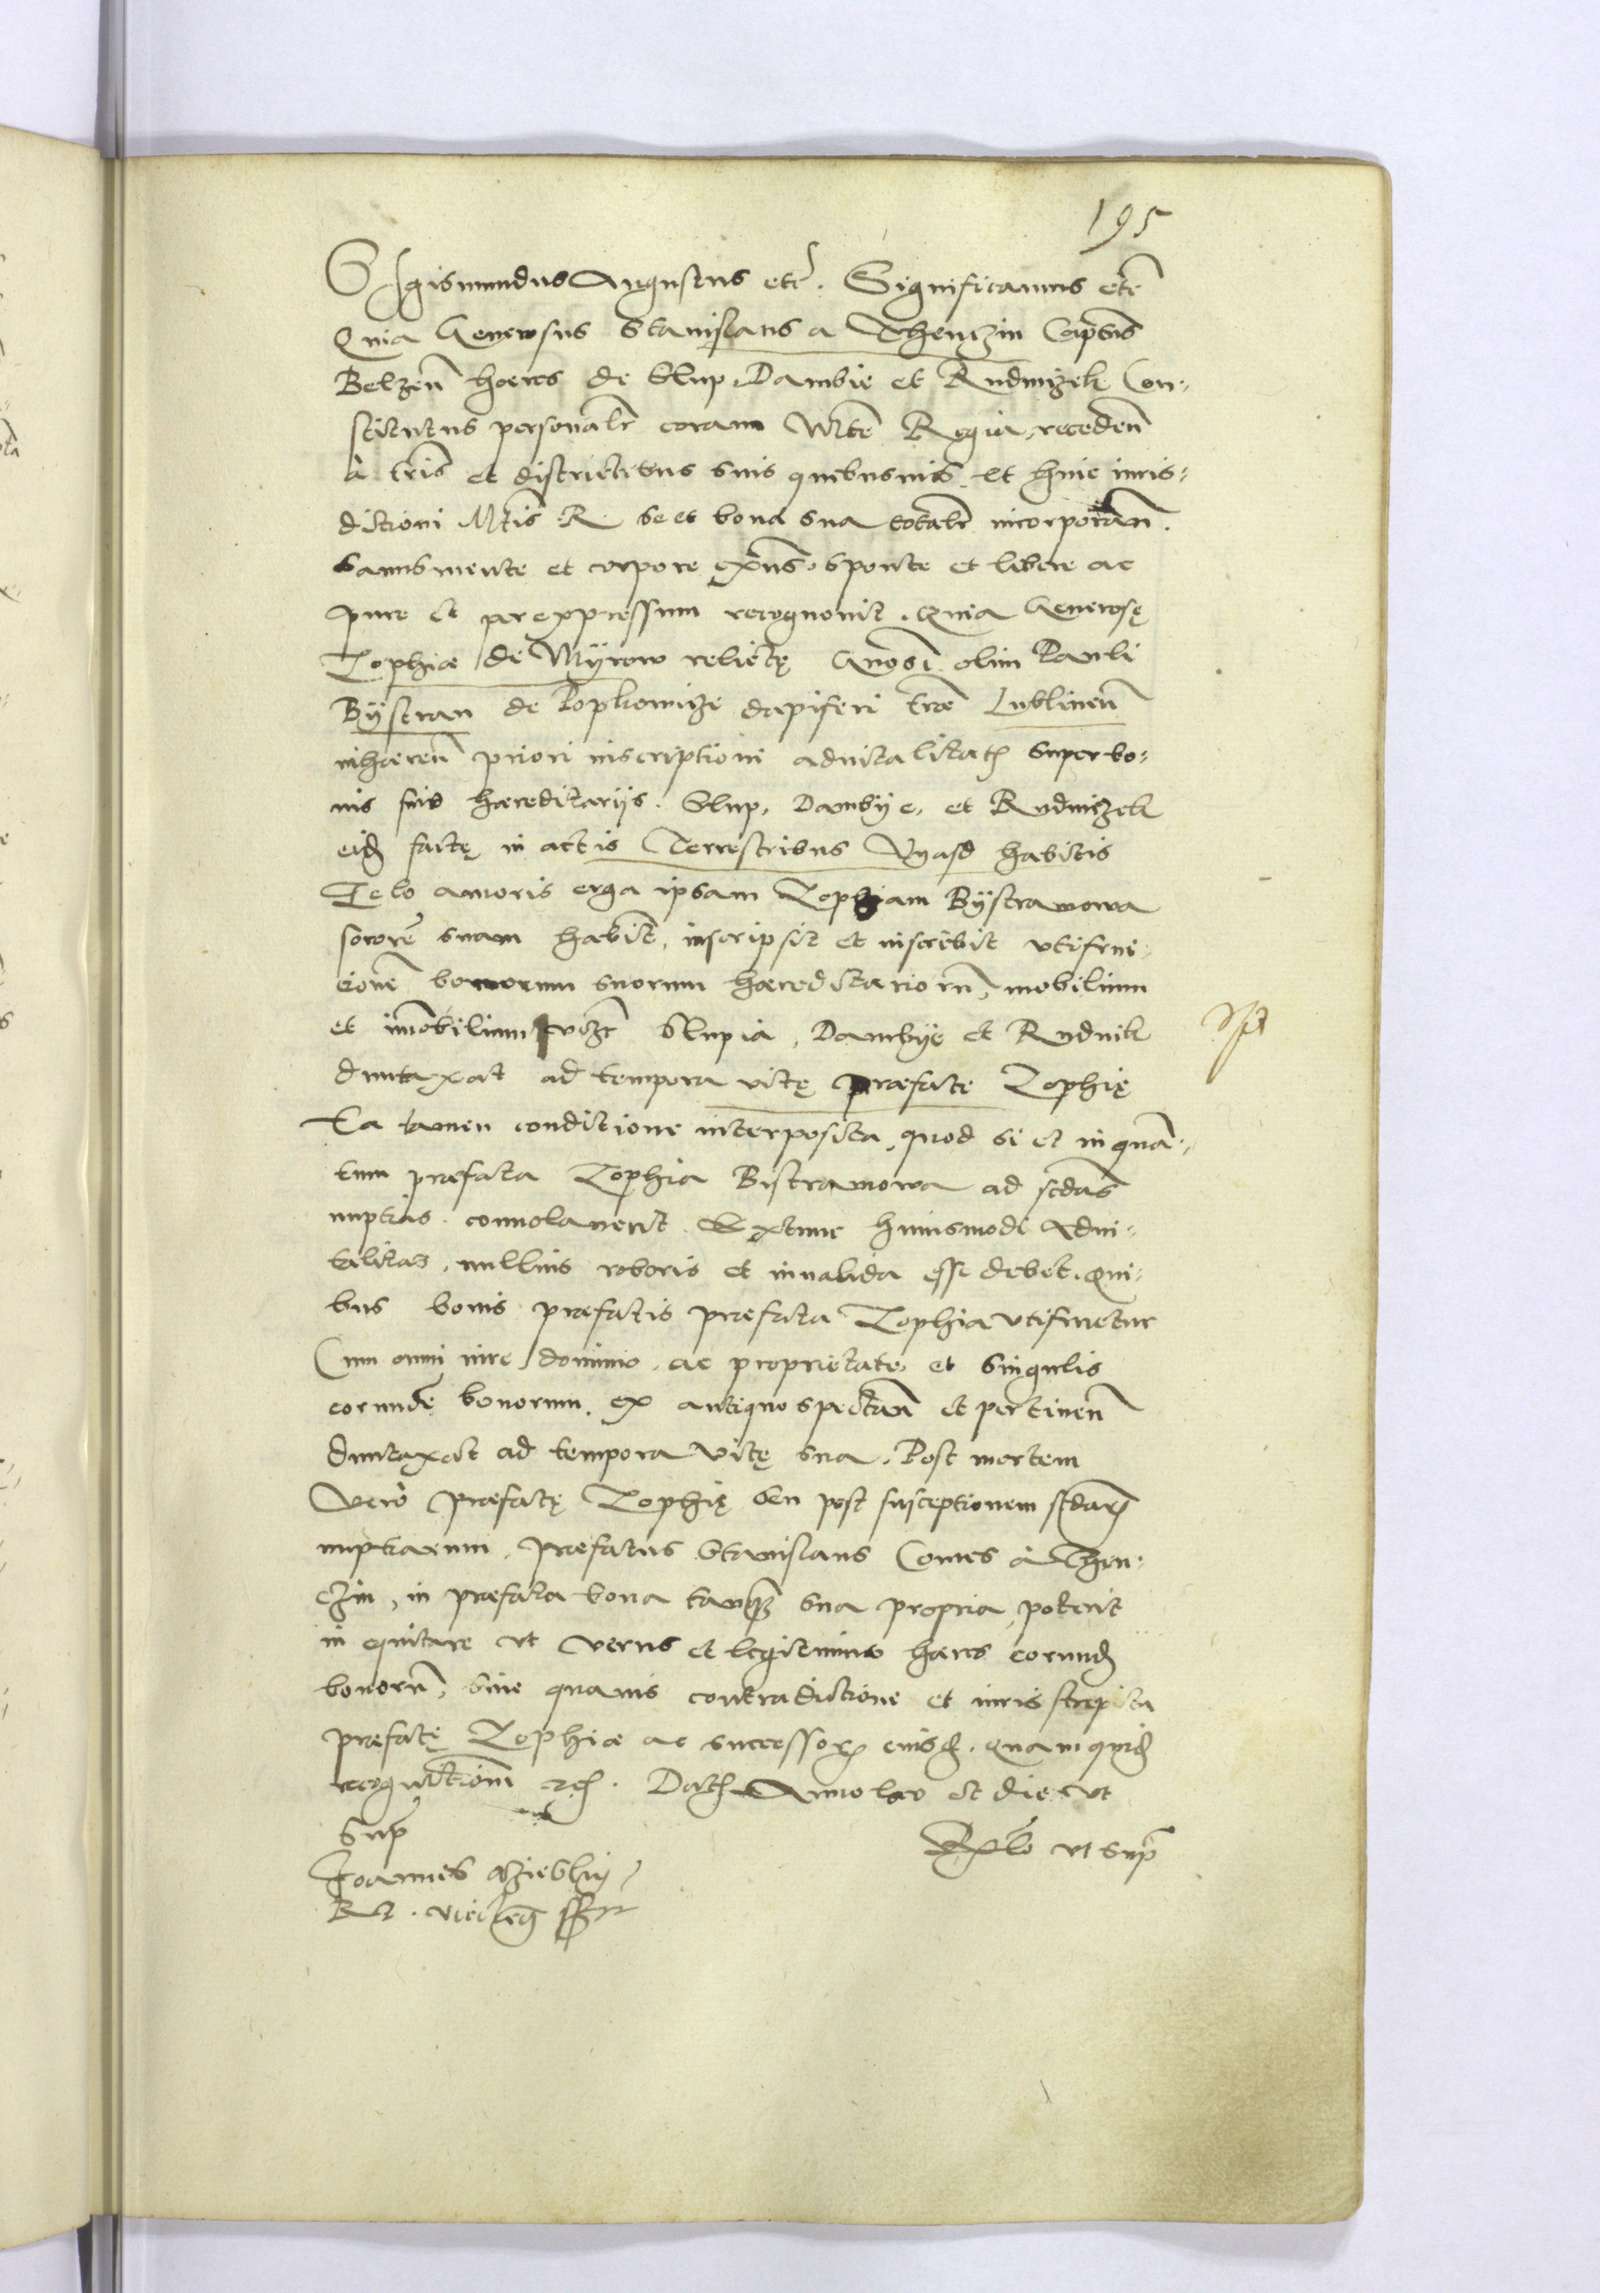 195
Sigismundus Augustus etc. Significamus etc
Quia Generosus Stanislaus a Thenczin Captus
Belzen haeres de Slup, Dambie et Rudnizek Con-
stitutus personalr coram Mte Regia, receden
à tris et districtibus suis quibusuis et huic iuris-
dictioni Mtis R. se et bona sua totalr incorporan.
Sanus mente et corpore exns, sponte et libere ac
pure et per expressum recognouit. Quia Generosę
Zophiae de Myrow relictę Gnosi olim Pauli
Bystran de Popkowize dapiferi trae Lublinen
inhaeren priori inscriptioni aduitalitatis super bo-
nis suis haereditarijs. Slup, Dambye, et Rudnizek
eid factę in actis Terrestribus habitis
Zelo amoris erga ipsam Zophiam Bystramowa
sorore suam habit, inscripsit et inscribit vtifrui-
tione bonorum suorum haereditariorū, mobilium
et imobilium vizt Slupia, Dambye et Rudnik
duntaxat ad tempora vitę praefate Zophię
Ea tamen conditione interposita, quod si et in quā-
tum praefata Zophia Bistramowa ad scdas
nuptias conuolauerit. Extunc huiusmodi Adui-
talitas, nullius roboris et inualida esse debet. Qui-
bus bonis praefatis praefata Zophia vtifruetur
Cum omni iure dominio, ac proprietate et singulis
eorunde bonorum, ex antiquo spectan et pertinen
duntaxat ad tempora vitę sua. Post mortem
Vero praefatę Zophię seu post susceptionem scdar
nuptiarum, praefatus Stanislaus Comes à Then-
czin, in praefata bona tanq sua propria, poterit
in equitare vt verus et legitimus haeres eorund
bonorū, sine quauis contradictione et iuris strepitu
praefatę Zophiae ac successor eiusd. Quam quid
recognitionem Dat Anno loco et die vt
Sup
Rlo vt sup
Joannes